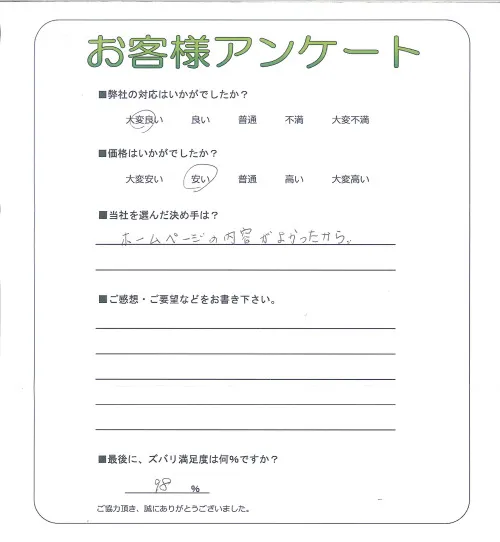 お客様アンケート
■弊社の対応はいかがでしたか？
大変良い 良い 普通 不満 大変不満
■価格はいかがでしたか？
大変安い 安い 普通 高い 大変高い
■当社を選んだ決め手は？
ホームページの内容がよかったから。
■ご感想・ご要望などをお書き下さい。
■最後に、ズバリ満足度は何%ですか？
98 %
ご協力頂き、誠にありがとうございました。